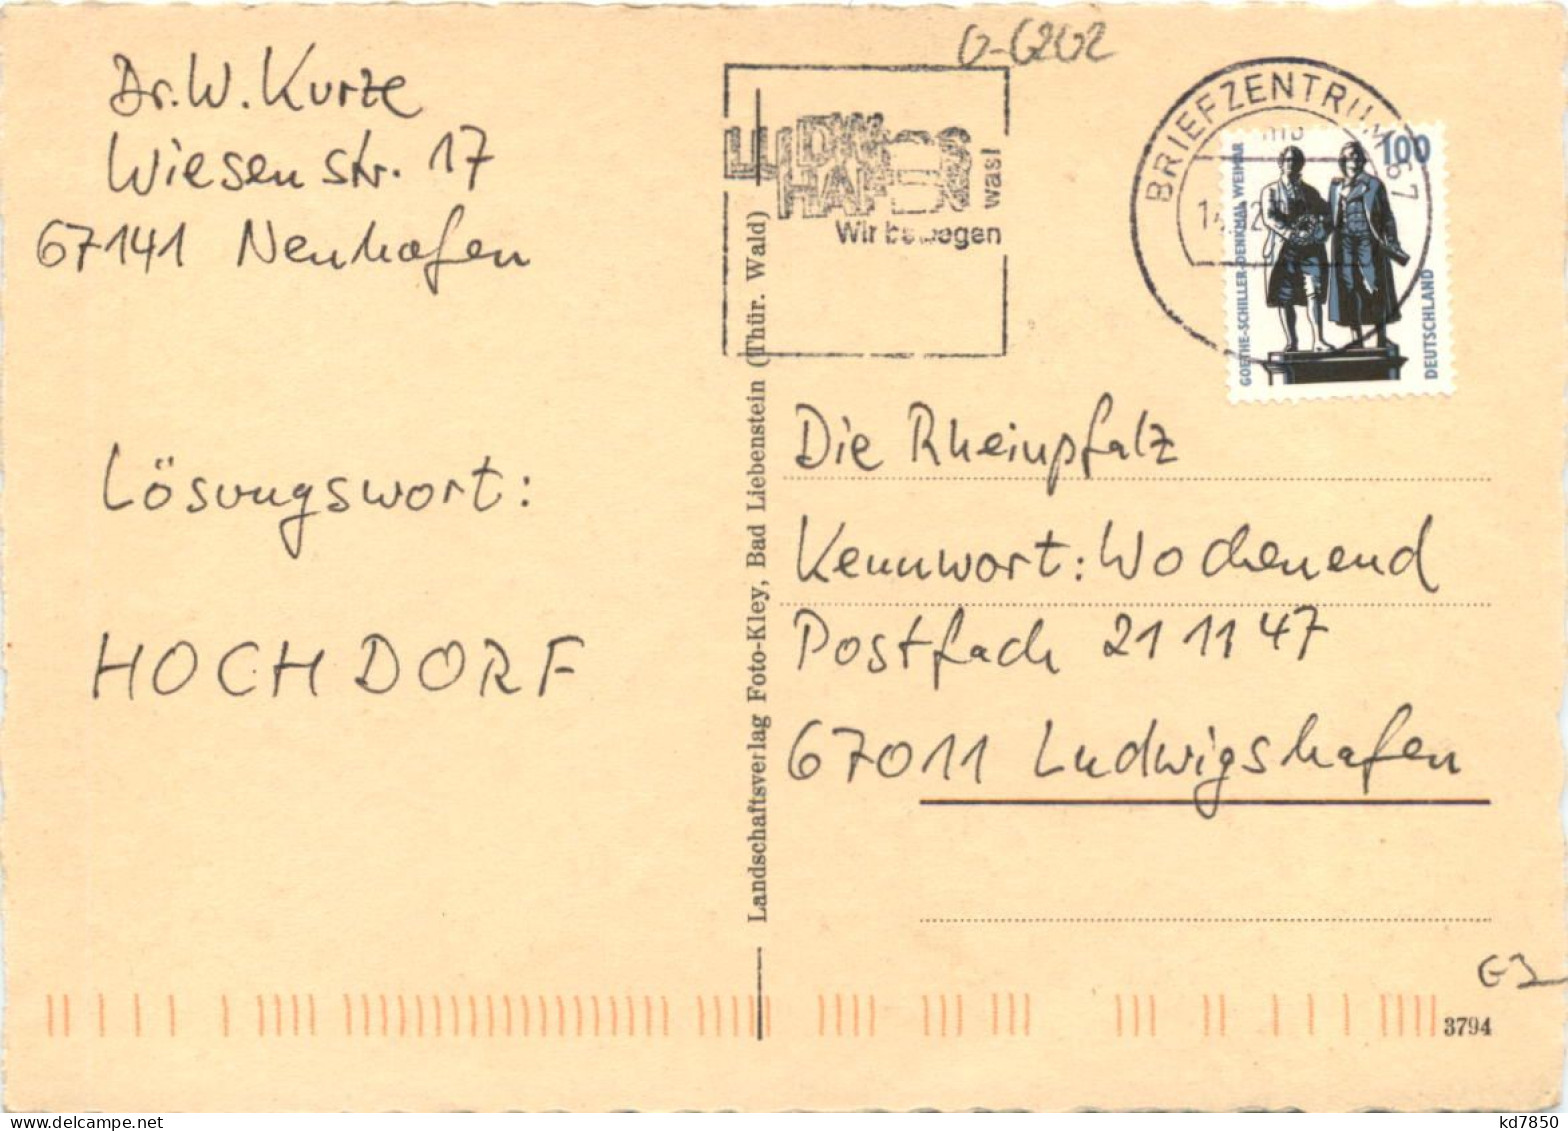 O-6202
Dr. W. Kurze
Wiesenstr. 17
67141 Neuhofen
Lösungswort:
HOCHDORF
LUDWIGS
HAFEN
was!
Wir bewegen
BRIEFZENTRUM 67
100
GOETHE-SCHILLER-DENKMAL WEIMAR
DEUTSCHLAND
Landschaftsverlag Foto-Kley, Bad Liebenstein (Thür. Wald)
Die Rheinpfalz
Kennwort: Wochenend
Postfach 21 11 47
67011 Ludwigshafen
3794
www.delcampe.net
kd7850